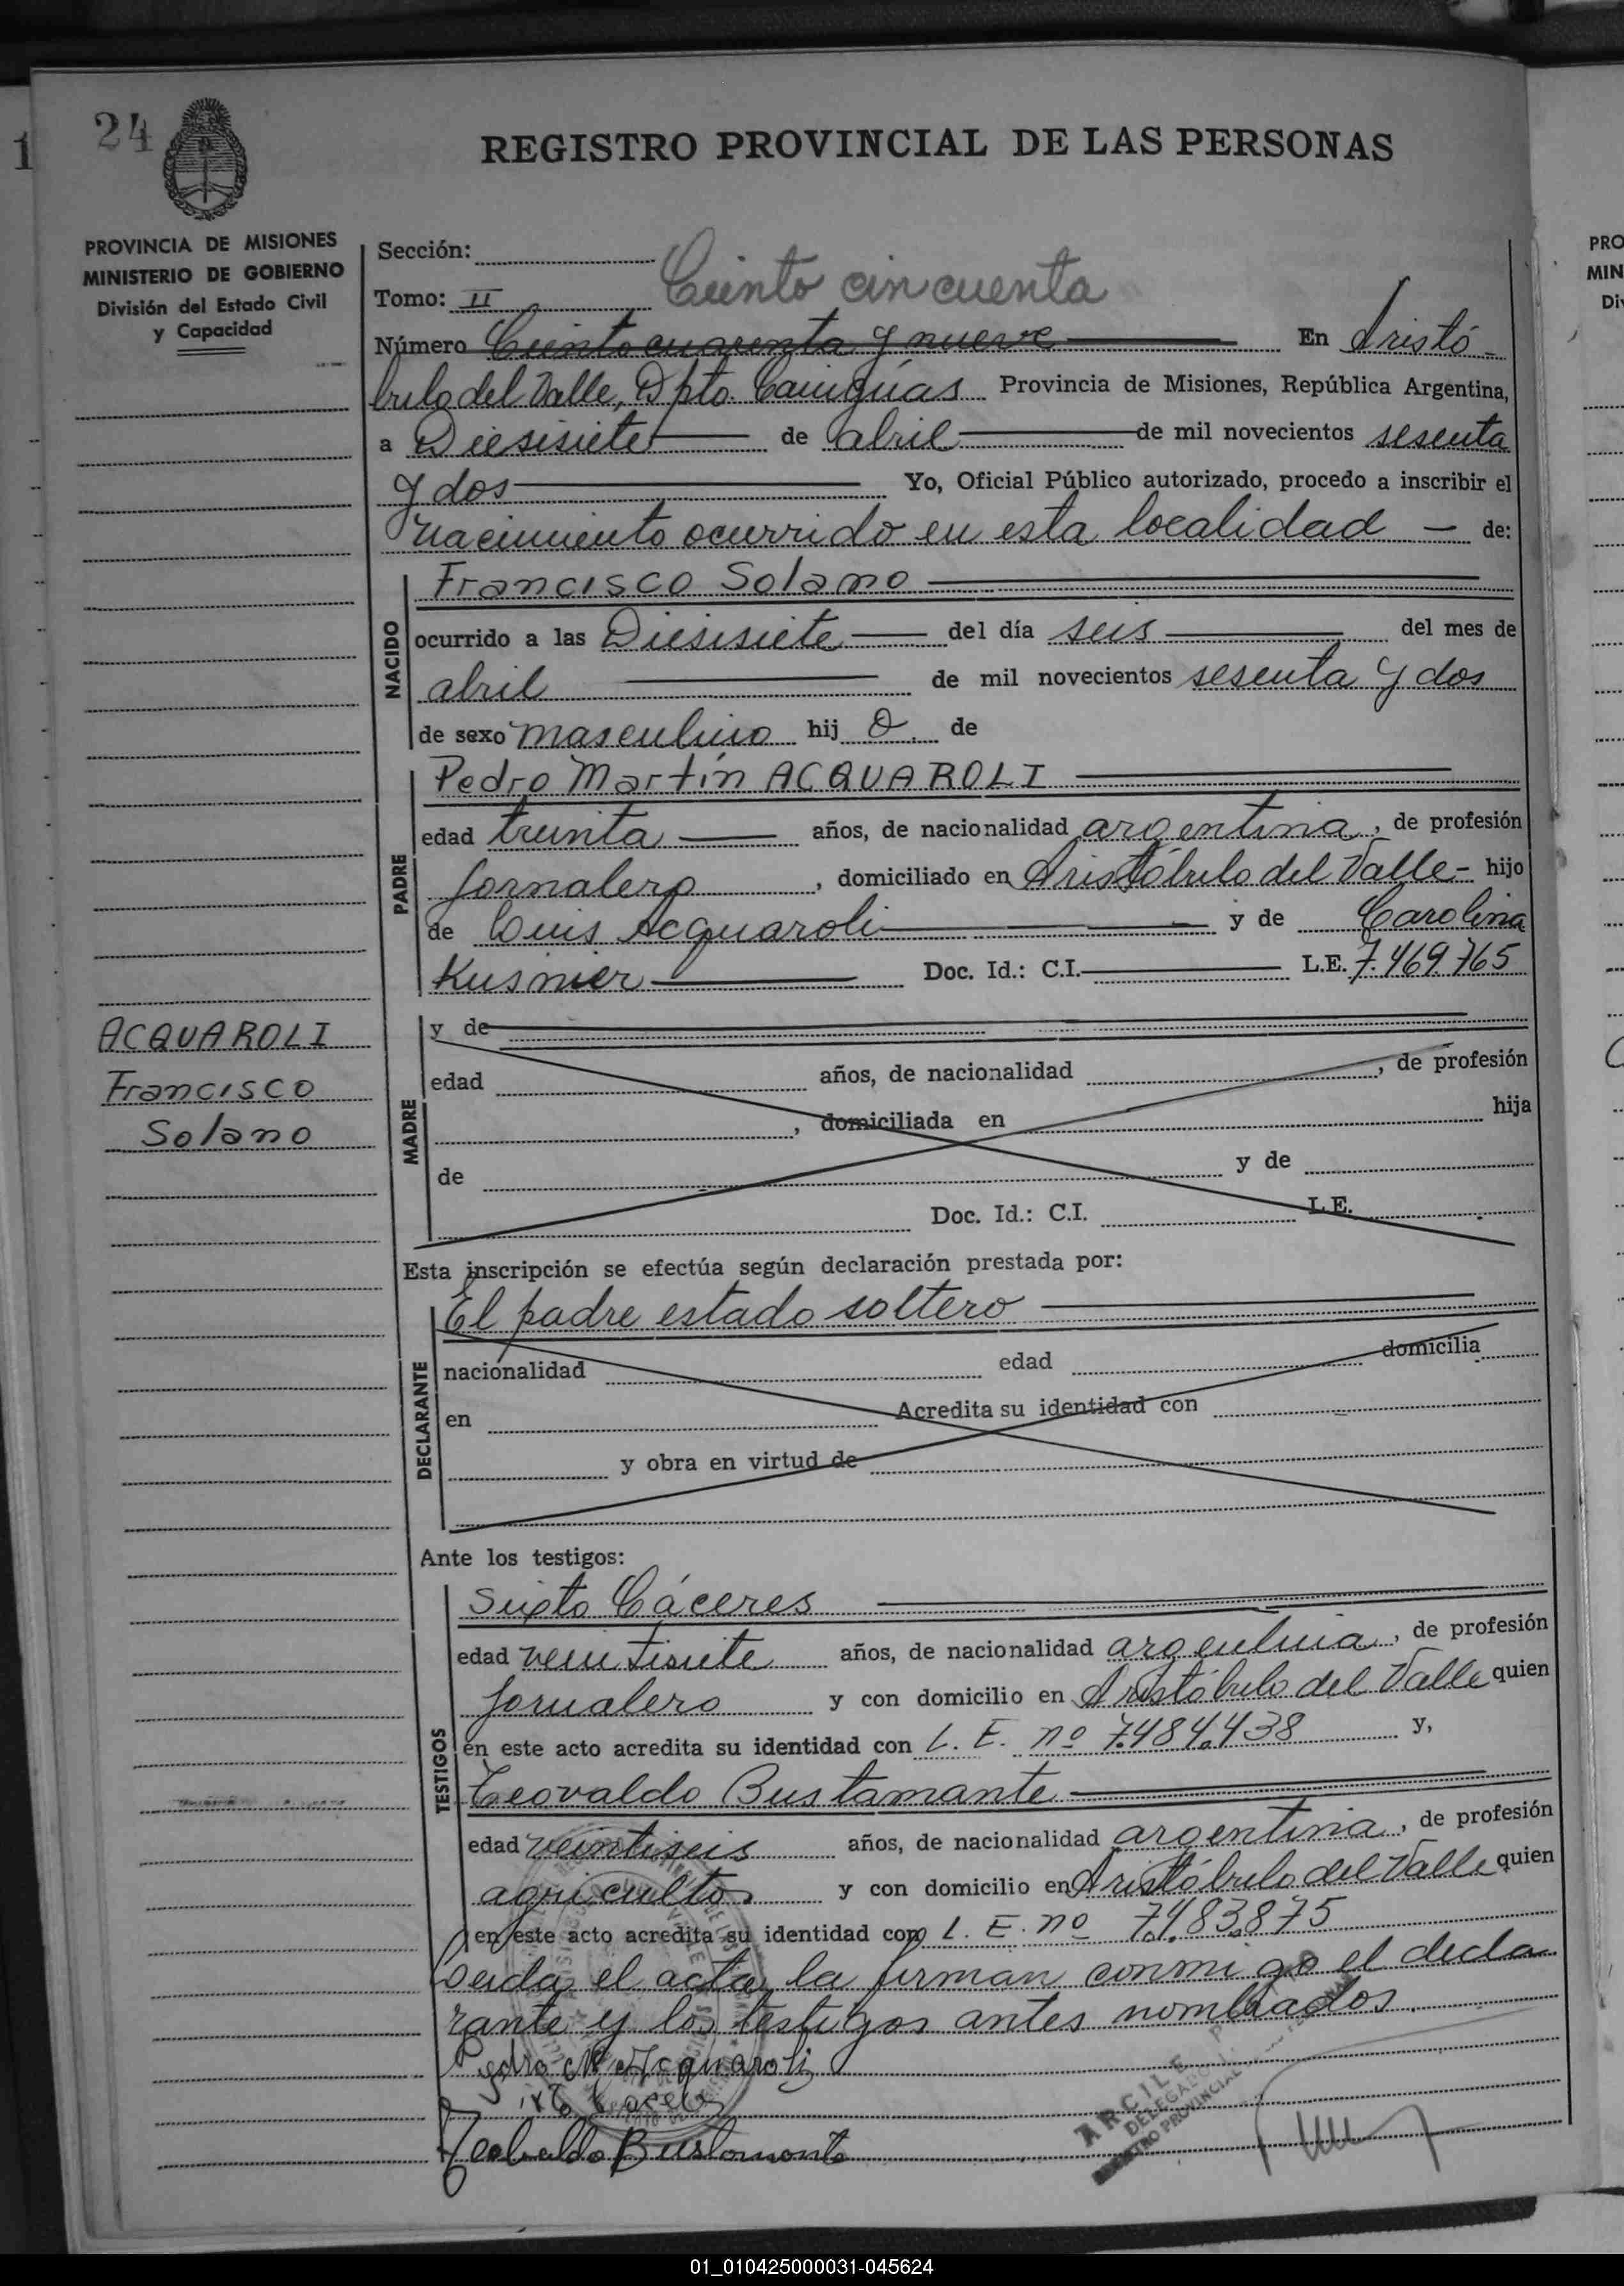 24
REGISTRO PROVINCIAL DE LAS PERSONAS
PROVINCIA DE MISIONES
MINISTERIO DE GOBIERNO
División del Estado Civil
y Capacidad
Sección:
Tomo: II
Ciento cincuenta
Número Ciento cuarenta y nueve En Aristó-
bulo del Valle, Dpto. Cainguas Provincia de Misiones, República Argentina,
a Diesisiete de abril de mil novecientos sesenta
y dos Yo, Oficial Público autorizado, procedo a inscribir el
nacimiento ocurrido en esta localidad de:
NACIDO
Francisco Solano
ocurrido a las Diesisiete del día seis del mes de
abril de mil novecientos sesenta y dos
de sexo masculino hij o. de
PADRE
Pedro Martín ACQUAROLI
edad treinta años, de nacionalidad argentina, de profesión
Jornalero, domiciliado en Aristóbulo del Valle- hijo
de Luis Acquaroli y de Carolina
Kusnier Doc. Id.: C.I. L.E. 7.469.765
ACQUAROLI
Francisco
Solano
MADRE
y de
edad años, de nacionalidad , de profesión
, domiciliada en hija
de y de
Doc. Id.: C.I. L.E.
Esta inscripción se efectúa según declaración prestada por:
DECLARANTE
El padre estado soltero
nacionalidad edad domicilia
en Acredita su identidad con
y obra en virtud de
Ante los testigos:
TESTIGOS
Sixto Cáceres
edad veintisiete años, de nacionalidad argentina, de profesión
Jornalero y con domicilio en Aristóbulo del Valle quien
en este acto acredita su identidad con L. E. nº 7.484.438 y,
Teovaldo Bustamante
edad veintiseis años, de nacionalidad argentina, de profesión
agricultor y con domicilio en Aristóbulo del Valle quien
en este acto acredita su identidad con L. E. nº 7.483.875
Leida el acta, la firman conmigo el decla
rante y los testigos antes nombrados.
Pedro M Acquaroli
Sixto Caceres
Teobaldo Bustamante
DELEGADO
PROVINCIAL
01_010425000031-045624